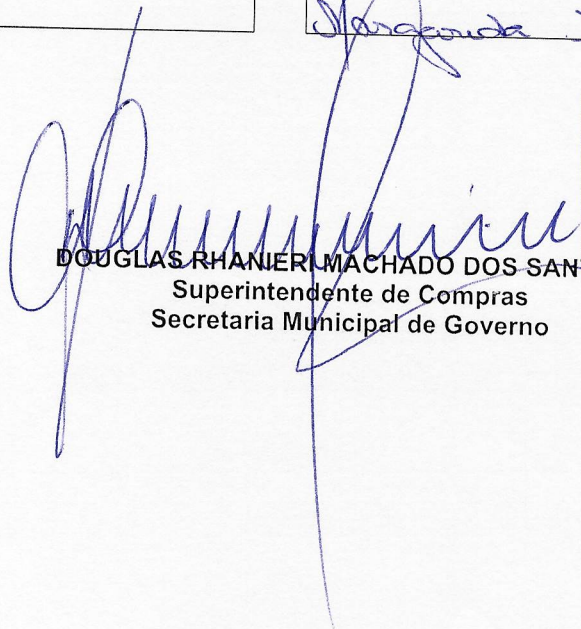 Margarida
DOUGLAS RHANIERI MACHADO DOS SAN
Superintendente de Compras
Secretaria Municipal de Governo